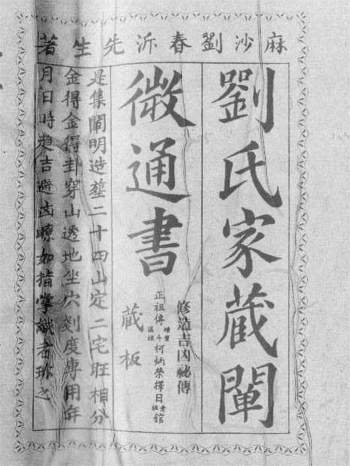 麻沙劉春沂先生著
劉氏家藏闡
微通書
修造吉凶祕傳
正祖傳柯炳榮擇日館
藏板
是集闡明造塟二十四山定二宅旺相分
金得金得卦穿山透地坐穴刻度專用年
月日時趨吉避凶瞭如指掌識者珍之